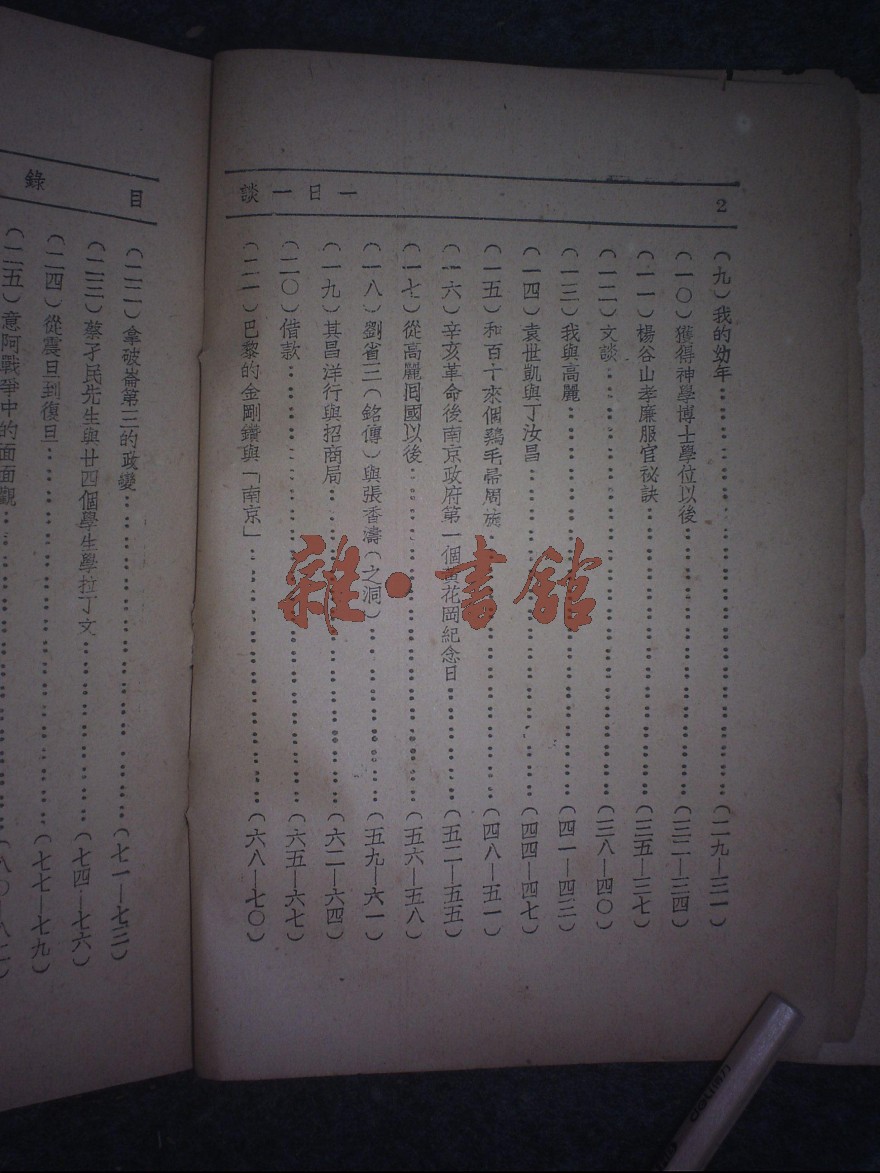 2
一日一談
(九)我的幼年……(二九—三一)
(一〇)獲得神學博士學位以後……(三二—三四)
(一一)楊谷山孝廉服官祕訣……(三五—三七)
(一二)文談……(三八—四〇)
(一三)我與高麗……(四一—四三)
(一四)袁世凱與丁汝昌……(四四—四七)
(一五)和百十來個鷄毛帚周旋……(四八—五一)
(一六)辛亥革命後南京政府第一個黃花岡紀念日……(五二—五五)
(一七)從高麗囘國以後……(五六—五八)
(一八)劉省三(銘傳)與張香濤(之洞)……(五九—六一)
(一九)其昌洋行與招商局……(六二—六四)
(二〇)借款……(六五—六七)
(二一)巴黎的金剛鑽與「南京」……(六八—七〇)
目錄
(二二)拿破崙第三的政變……(七一—七三)
(二三)蔡孑民先生與廿四個學生學拉丁文……(七四—七六)
(二四)從震旦到復旦……(七七—七九)
(二五)意阿戰爭中的面面觀……(八〇—八二)
雜·書館
deli得力